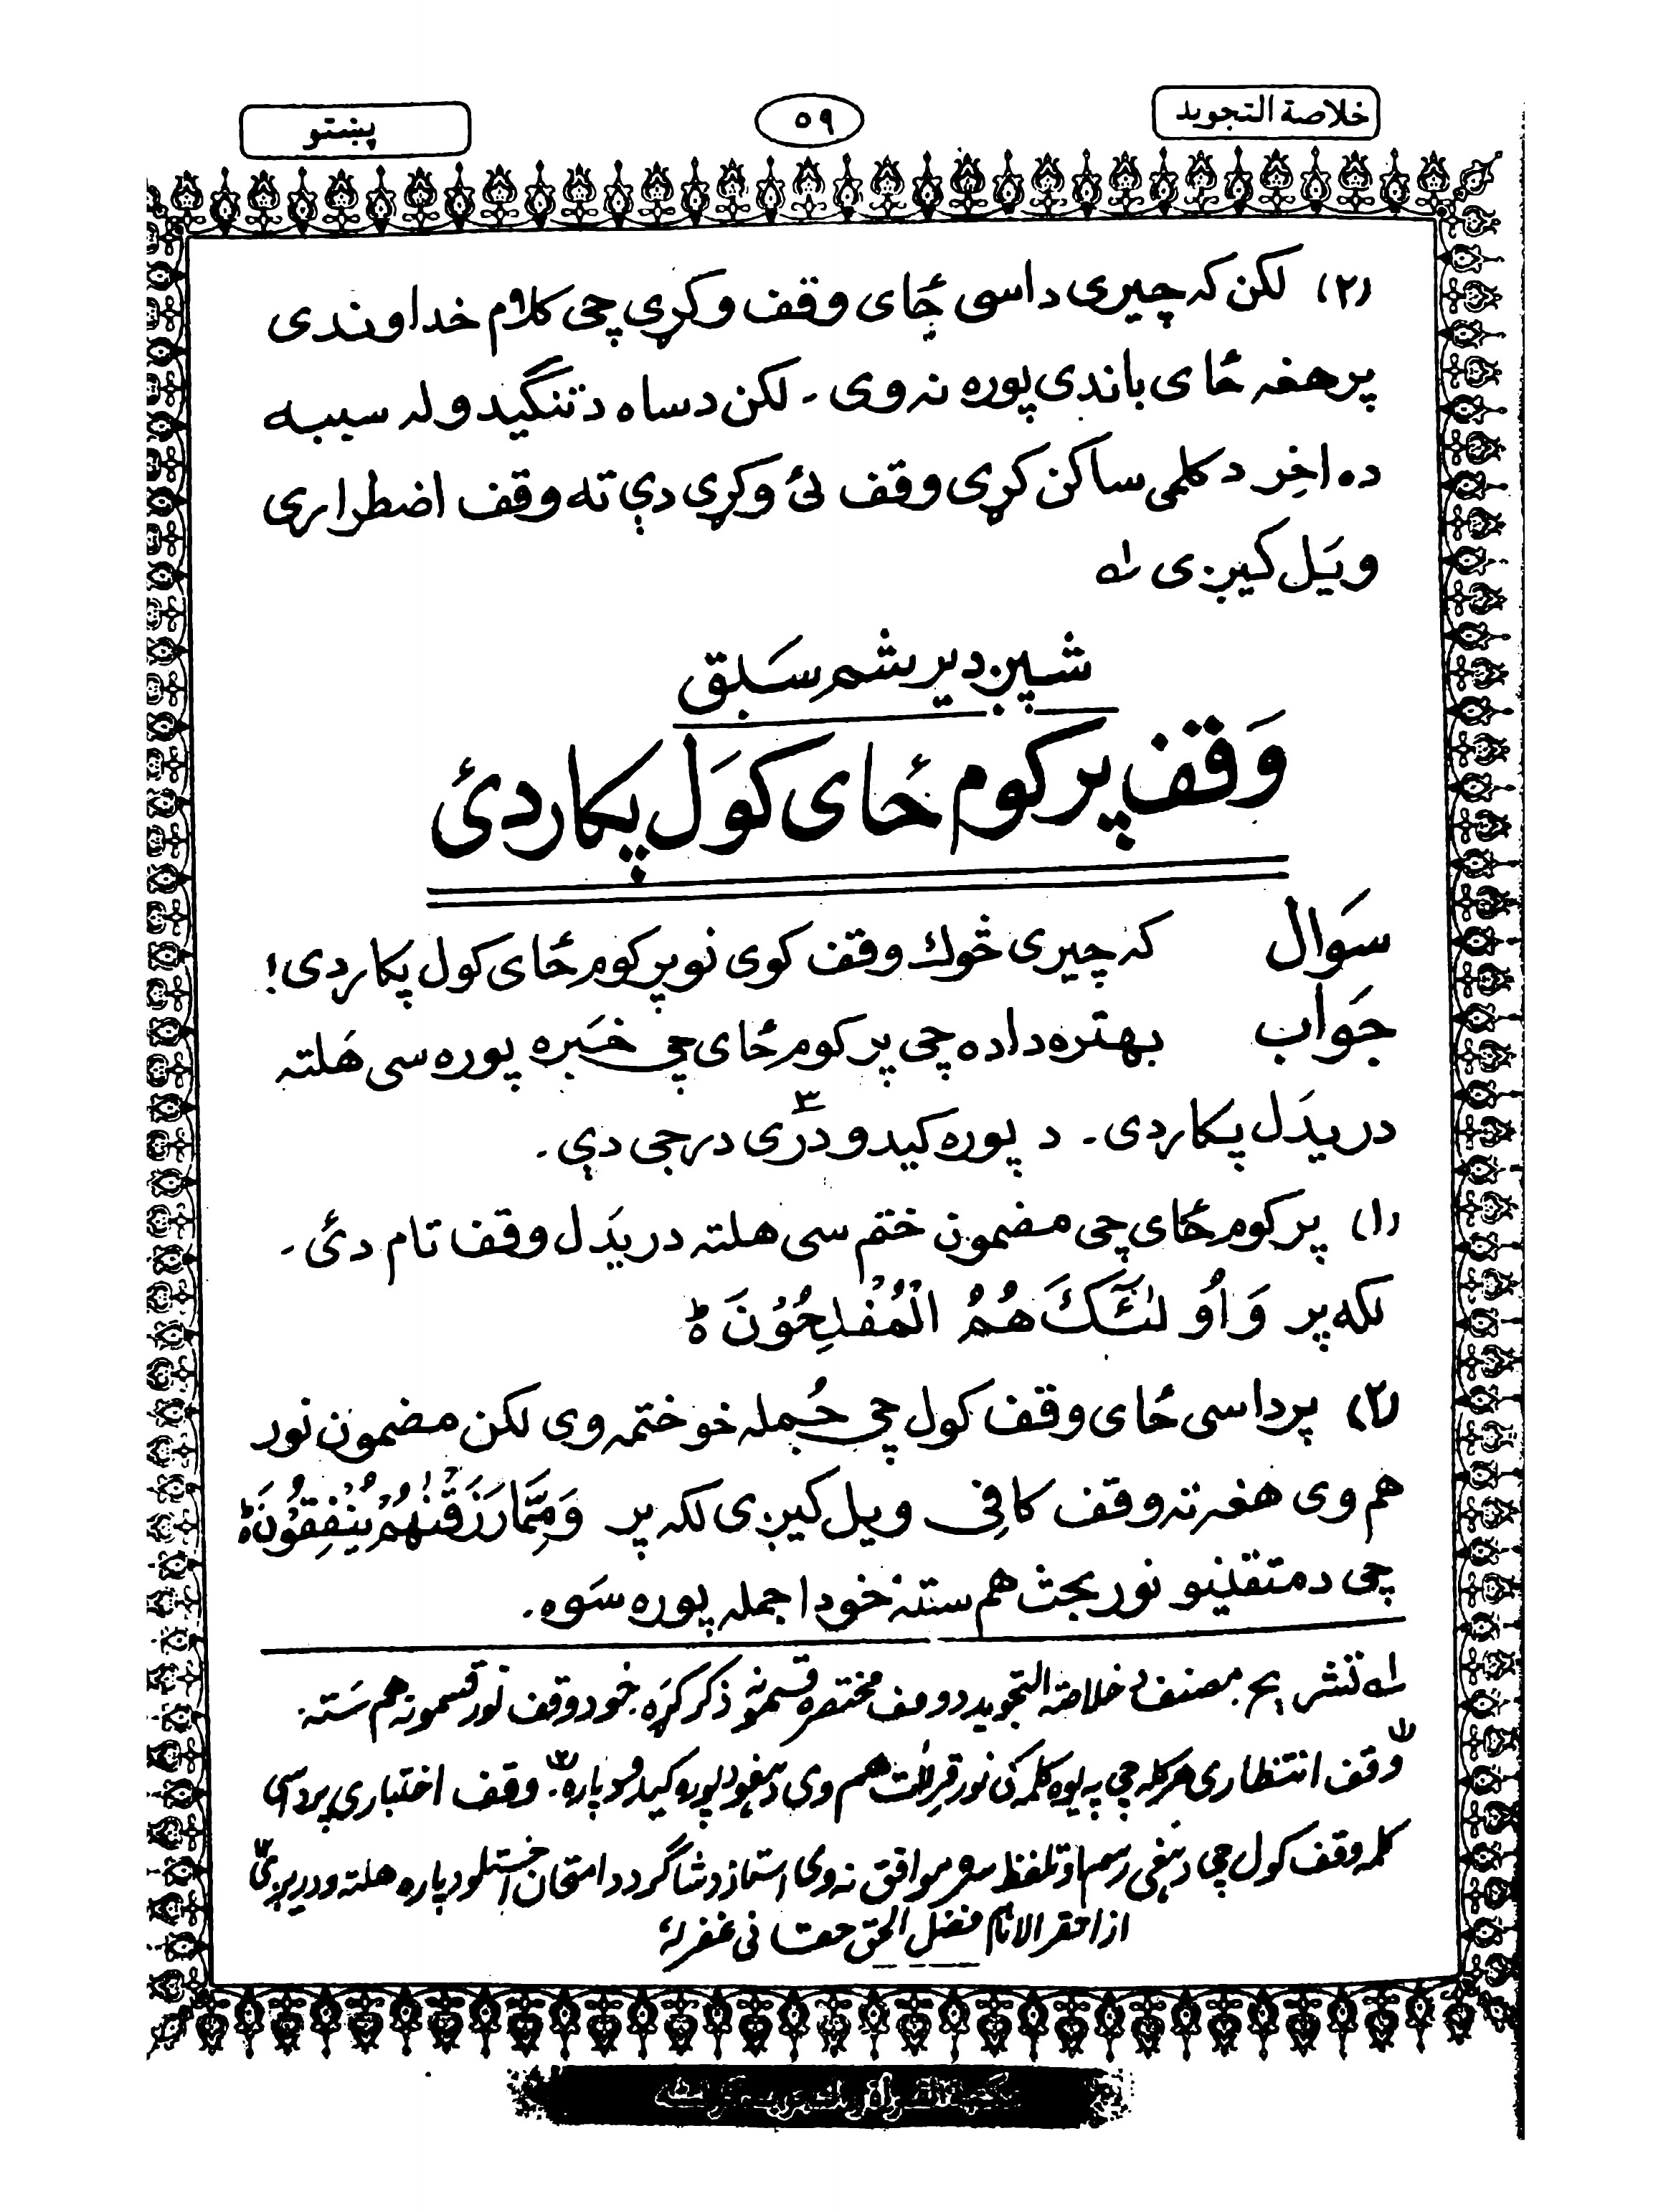 خلاصة التجويد
۵۹
پښتو
(۲) لکن که چيری داسی ځای وقف وکړې چی کلام خداوندی
پر هغه ځای باندی پوره نه وی ۔ لکن د ساه د تنگيدو له سببه
ده اخِر د کلمی ساکن کړی وقف ئې وکړی دې ته وقف اضطراری
ويَل کيږی ؎۱
شپږ ديرشم سَبق
وَقف پر کوم ځای کوَل پکار دئ
سَوال که چيری څوك وقف کوی نو پر کوم ځای کول پکار دی؛
جَواب بهتره داده چی پر کوم ځای چی خبَره پوره سی هَلته
دريدَل پکار دی ۔ د پوره کيدو درَی ۳ درجی دې ۔
(۱) پر کوم ځای چی مضمون ختم سی هلته دريدَل وقف تام دئ ۔
لکه پر وَاُولٰٓئِكَ هُمُ الْمُفْلِحُوْنَ ہ
(۲) پر داسی ځای وقف کول چی جُمله خو ختمه وی لکن مضمون نور
هم وی هغه ته وقف کافِی ويل کيږی لکه پر وَمِمَّا رَزَقْنٰهُمْ يُنْفِقُوْنَ ہ
چی د متقينو نور بحث هم سته خو دا جمله پوره سَوه ۔
؎۱ تشريح مصنف د خلاصة التجويد د وقف مختصره قسمونه ذکر کړه خو د وقف نور قسمونه هم سَته
وقف انتظاری هر کله چی په يوه کلمه کی نور قرأت هم وی د هغو د پوره کيدو د پاره ۔ وقف اختباری پر داسی
کلمه وقف کول چی د هغې رسم او تلفظ سره موافق نه وی استاذ د شاگرد د امتحان اخستلو د پاره هلته ودريږی
از احقر الانام فضل الحق حقانی غفر له